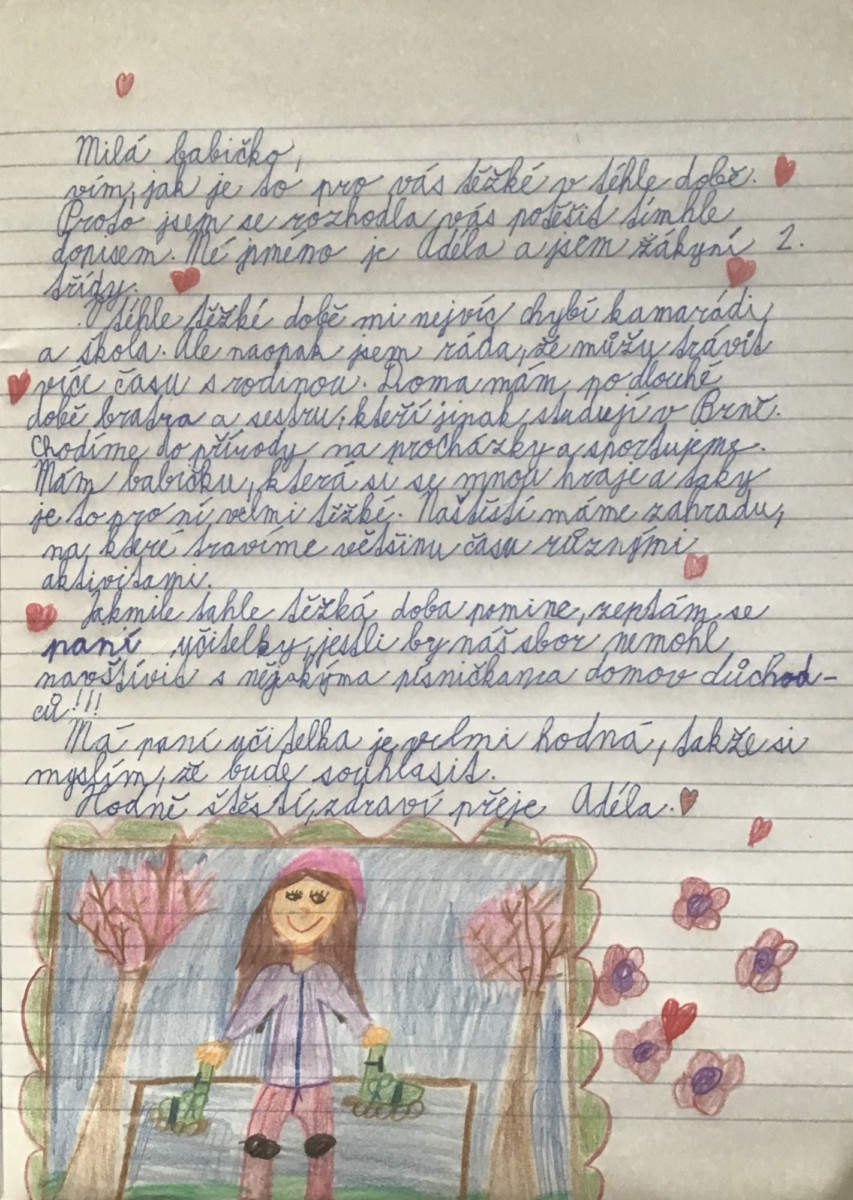 Milá babičko,
vím, jak je to pro vás těžké v téhle době.
Proto jsem se rozhodla vás potěšit tímhle
dopisem. Mé jméno je Adéla a jsem žákyní 2.
třídy.
V téhle těžké době mi nejvíc chybí kamarádi
a škola. Ale naopak jsem ráda, že můžu trávit
více času s rodinou. Doma mám po dlouhé
době bratra a sestru, kteří jinak studují v Brně.
Chodíme do přírody na procházky a sportujeme.
Mám babičku, která si se mnou hraje a taky
je to pro ní velmi těžké. Naštístí máme zahradu,
na které travíme většinu času různými
aktivitami.
Jakmile tahle těžká doba pomine, zeptám se
paní učitelky, jestli by náš sbor nemohl
navštívit s nějakýma písničkama domov důchod-
ců!!!
Má paní učitelka je velmi hodná, takže si
myslím, že bude souhlasit.
Hodně štěstí, zdraví přeje Adéla.